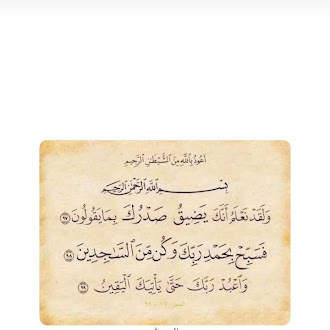 أعوذ بالله من الشيطان الرجيم
بِسْمِ اللَّهِ الرَّحْمَٰنِ الرَّحِيمِ
وَلَقَدْ نَعْلَمُ أَنَّكَ يَضِيقُ صَدْرُكَ بِمَا يَقُولُونَ ٩٧
فَسَبِّحْ بِحَمْدِ رَبِّكَ وَكُن مِّنَ السَّاجِدِينَ ٩٨
وَاعْبُدْ رَبَّكَ حَتَّىٰ يَأْتِيَكَ الْيَقِينُ ٩٩